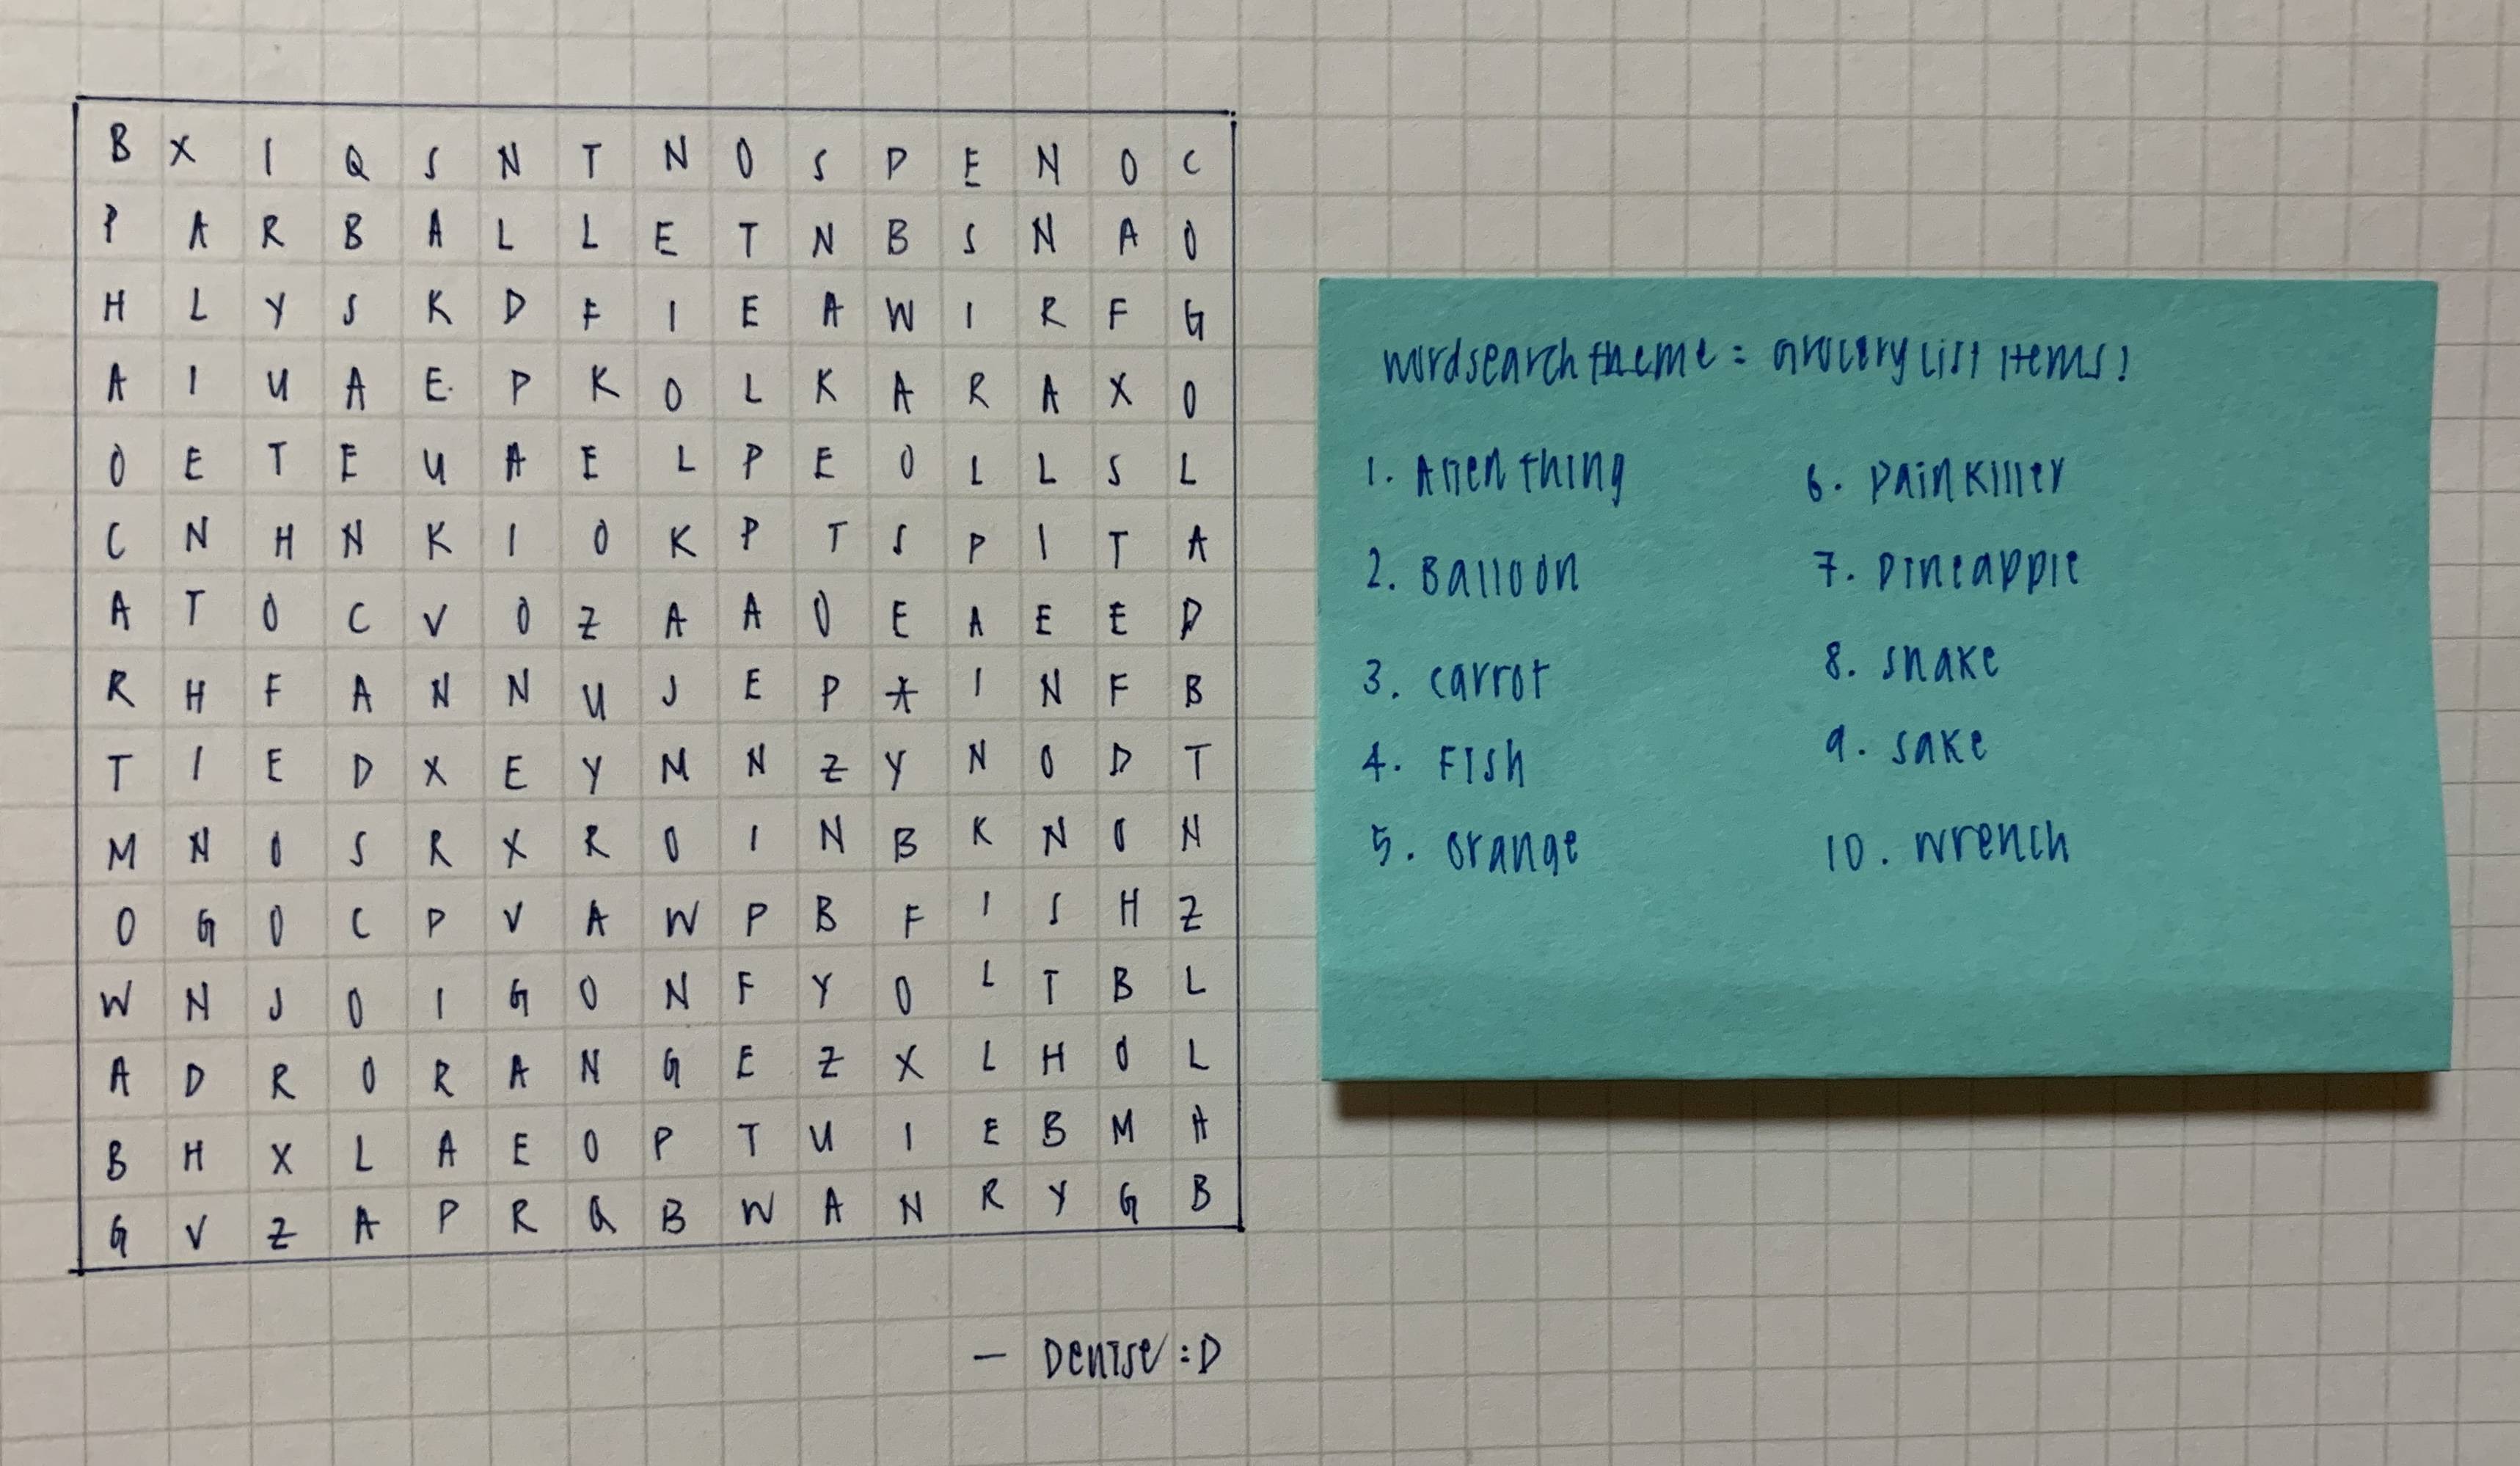 B X I Q S N T N O S P E N O C
P A R B A L L E T N B S N A O
H L Y S K D F I E A W I R F G
A I U A E P K O L K A R A X O
O E T E U A E L P E O L L S L
C N H N K I O K P T S P I T A
A T O C V O Z A A O E A E E D
R H F A N N U J E P A I N F B
T I E D X E Y M N Z Y N O D T
M N O S R X R O I N B K N O N
O G O C P V A W P B F I S H Z
W N J O I G O N F Y O L T B L
A D R O R A N G E Z X L H O L
B H X L A E O P T U I E B M H
G V Z A P R Q B W A N R Y G B
— Denise :D
wordsearch theme = Grocery list items!
1. Alien thing
2. Balloon
3. carrot
4. Fish
5. orange
6. painkiller
7. pineapple
8. snake
9. sake
10. wrench